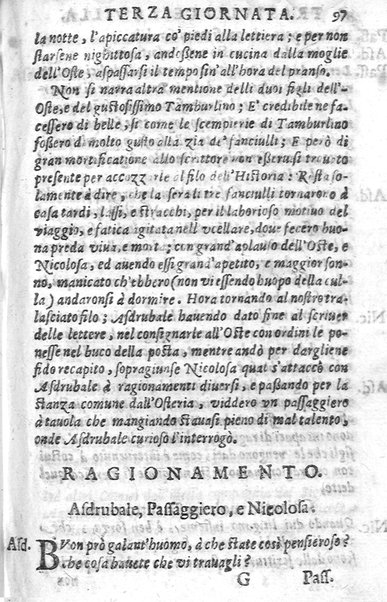 TERZA GIORNATA. 97
la notte, l'apiccatura co' piedi alla lettiera; e per non
starsene nighittosa, andeßene in cucina dalla moglie
dell'Oste, àspaßarsi il tempo sin'all'hora del pranso.
Non si narra altra mentione delli duoi figli dell'-
Oste, e del gustosißimo Tamburlino; E' credibile ne fa-
ceßero di belle, si come le scempierie di Tamburlino
foßero di molto gusto alla zia de' fanciulli; E però di
gran mortificatione allo scrittore non eßerusi trouato
presente per accozzarle al filo dell'Historia: Resta so-
lamente à dire, che la sera li tre fanciulli tornaroro à
casa tardi, laßi, e stracchi, per il laborioso motiuo del
viaggio, e fatica igitata nell'vcellare, doue fecero buo-
na preda viua, e morta; con grand'aplauso dell'Oste, e
Nicolosa, ed auendo essi grand'apetito, e maggior son-
no, manicato ch'ebbero (non vi essendo huopo della cul-
la) andaronsi à dormire. Hora tornando al nostro tra-
lasciato filo; Asdrubale hauendo dato fine al scriuer
delle lettere, nel consignarle all'Oste con ordini le po-
nesse nel buco della posta, mentre andò per dargliene
fido recapito, sopragiunse Nicolosa qual s'attaccò con
Asdrubale à ragionamenti diuersi, e paßando per la
stanza comune dall'Osteria, viddero vn paßaggiero
à tauola che mangiando stauasi pieno di mal talento,
onde Asdrubale curioso l'interrogò.
RAGIONAMENTO.
Asdrubale, Passaggiero, e Nicolosa.
Asd. BVon prò galant'huomo, à che state così pensieroso?
che cosa hauete che vi trauagli?
G Pass.